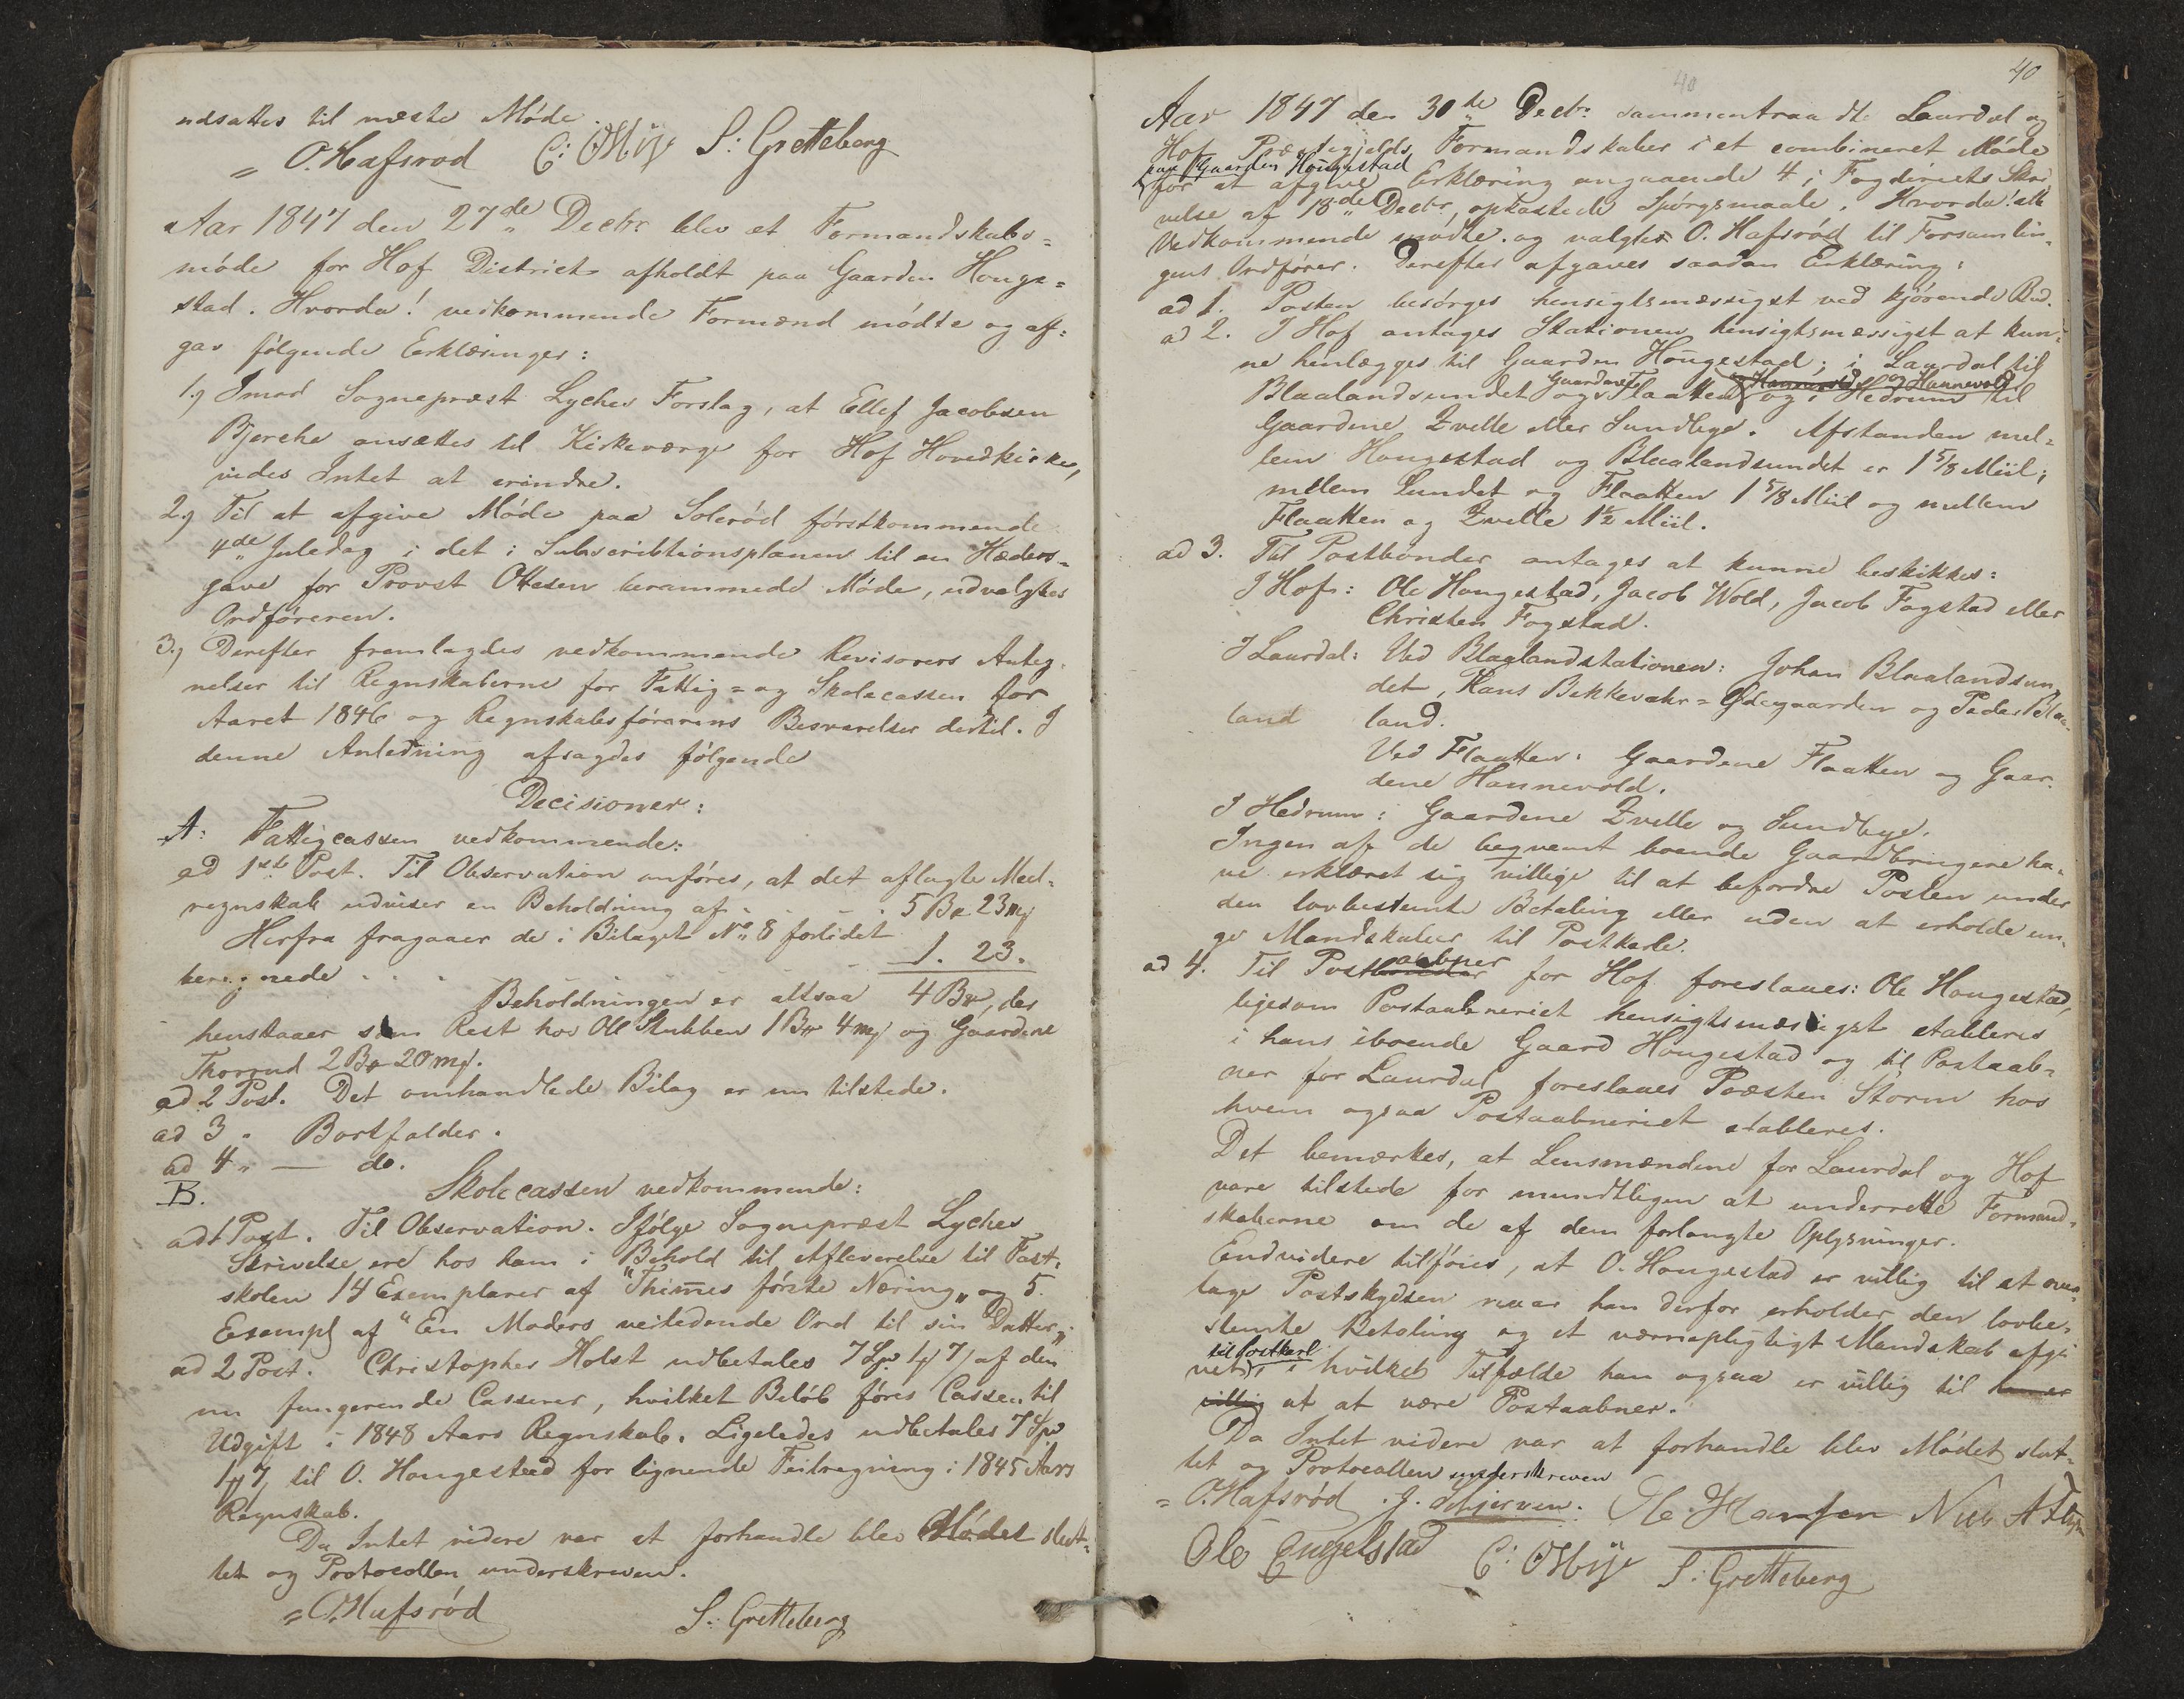 udsattes til næste Møde.
O. Hafsrød C: OMye S: Gretteberg
Aar 1847 den 27de Decbr blev et Formandskabs=
møde for Hof District afholdt paa Gaarden Houge=
stad. Hvorda! vedkommende Formænd mødte og af=
gav følgende Erklæringer:
1.) Imod Sognepræst Lyches Forslag, at Ellef Jacobsen
Bjerche ansættes til Kirkeværge for Hof Hovedkirke,
vides Intet at erindre.
2.) Til at afgive Møde paa Solerød førstkommende
4de Juledag i det i Subscribtionsplanen til en Hæders=
gave for Provst Ottesen berammede Møde, udvalgtes
Ordføreren.
3.) Derefter fremlagdes vedkommende Revisorers Anteg=
nelser til Regnskaberne for Fattig= og Skolecassen for
Aaret 1846 og Regnskabsførerens Besvarelser dertil. I
denne Anledning afsagdes følgende
Decisioner:
A: Fattigcassen vedkommende:
ad 1ste Post. Til Observation anføres, at det aflagte Meel=
regnskab udviser en Beholdning af . . . 5 Bp 23 mk
Herfra fragaaer de i Bilaget No 8 forlidet
beregnede . . . 1. 23.
Beholdningen er altsaa 4 Bp, der
henstaaer som Rest hos Ole Stubben 1 Bp 4 mk og Gaardene
Thorrud 2 Bp 20 mk.
ad 2 Post. Det omhandlede Bilag er nu tilstede.
ad 3 " Bortfalder.
ad 4 " — do.
B. Skolecassen vedkommende:
ad 1 Post. Til Observation. Ifølge Sognepræst Lyches
Skrivelse ere hos ham i Behold til Afleverelse til Fast=
skolen 14 Exemplarer af "Thimes første Næring" og 5
Exempl af "En Moders veiledende Ord til sin Datter".
ad 2 Post. Christopher Holst udbetales 7 Spd 1 # 7 / af den
nu fungerende Casserer, hvilket Beløb føres Cassen til
Udgift i 1848 Aars Regnskab. Ligeledes udbetales 7 Spd
1 # 7 / til O. Hougestad for lignende Feilregning i 1845 Aars
Regnskab.
Da Intet videre var at forhandle blev Mødet slut=
tet og Protocollen underskreven.
O. Hafsrød S: Gretteberg
40
40
Aar 1847 den 30te Decbr sammentraadte Laurdal og
Hof Præstegjelds Formandskaber i et combineret Møde
paa Gaarden Hougestad
for at afgive Erklæring angaaende 4 i Fogderiets Skri=
velse af 18de Decbr opkastede Spørgsmaale. Hvorda! alle
Vedkommende mødte. og valgtes O. Hafsrød til Forsamlin=
gens Ordfører. Derefter afgaves saadan Erklæring:
ad 1. Posten besørges hensigtsmæssigst ved kjørende Bud.
ad 2. I Hof antages Stationen hensigtsmæssigst at kun=
ne henlægges til Gaarden Hougestad; i Laurdal til
Gaardene og Hannevold og Hannevold
Blaalandsundet og Flaatten og i Hedrum til
Gaardene Zvelle eller Sundbye. Afstanden mel=
lem Hougestad og Blaalandsundet er 1 5/8 Miil;
mellem Sundet og Flaatten 1 5/8 Miil og mellem
Flaatten og Zvelle 1 1/2 Miil.
ad 3. Til Postbønder antages at kunne beskikkes:
I Hof: Ole Hougestad, Jacob Wold, Jacob Fogstad eller
Christen Fogstad.
I Laurdal: Ved Blaalandstationen: Johan Blaalandsun
det, Hans Bekkevahr=Ødegaarden og Peder Blaa=
land land.
Ved Flaatten: Gaardene Flaatten og Gaar=
dene Hannevold.
I Hedrum: Gaardene Zvelle og Sundbye.
Ingen af de beqvemt boende Gaardbrugere ha=
ve erklæret sig villige til at befordre Posten under
den lovbestemte Betaling eller uden at erholde un=
ge Mandskaber til Postkarle.
aabner
ad 4. Til Postbønder for Hof foreslaaes: Ole Hougestad,
ligesom Postaabneriet hensigtsmæssigst etableres
i hans iboende Gaard Hougestad og til Postaab=
ner for Laurdal foreslaaes Præsten Storm hos
hvem ogsaa Postaabneriet etableres.
Det bemærkes, at Lensmændene for Laurdal og Hof
vare tilstede for mundtligen at underrette Formand=
skaberne om de af dem forlangte Oplysninger.
Endvidere tilføies, at O. Hougestad er villig til at over=
tage Postskydsen naar han derfor erholder den lovbe=
stemte Betaling og et værnepligtigt Mandskab afgi
til Postkarl
vet, i hvilket Tilfælde han ogsaa er villig til
villig at at være Postaabner.
Da Intet videre var at forhandle blev Mødet slut=
tet og Protocollen underskreven
O. Hafsrød J. Schjerven. Ole Hansen Niels A
Ole Engelstad C: OMye S: Gretteberg